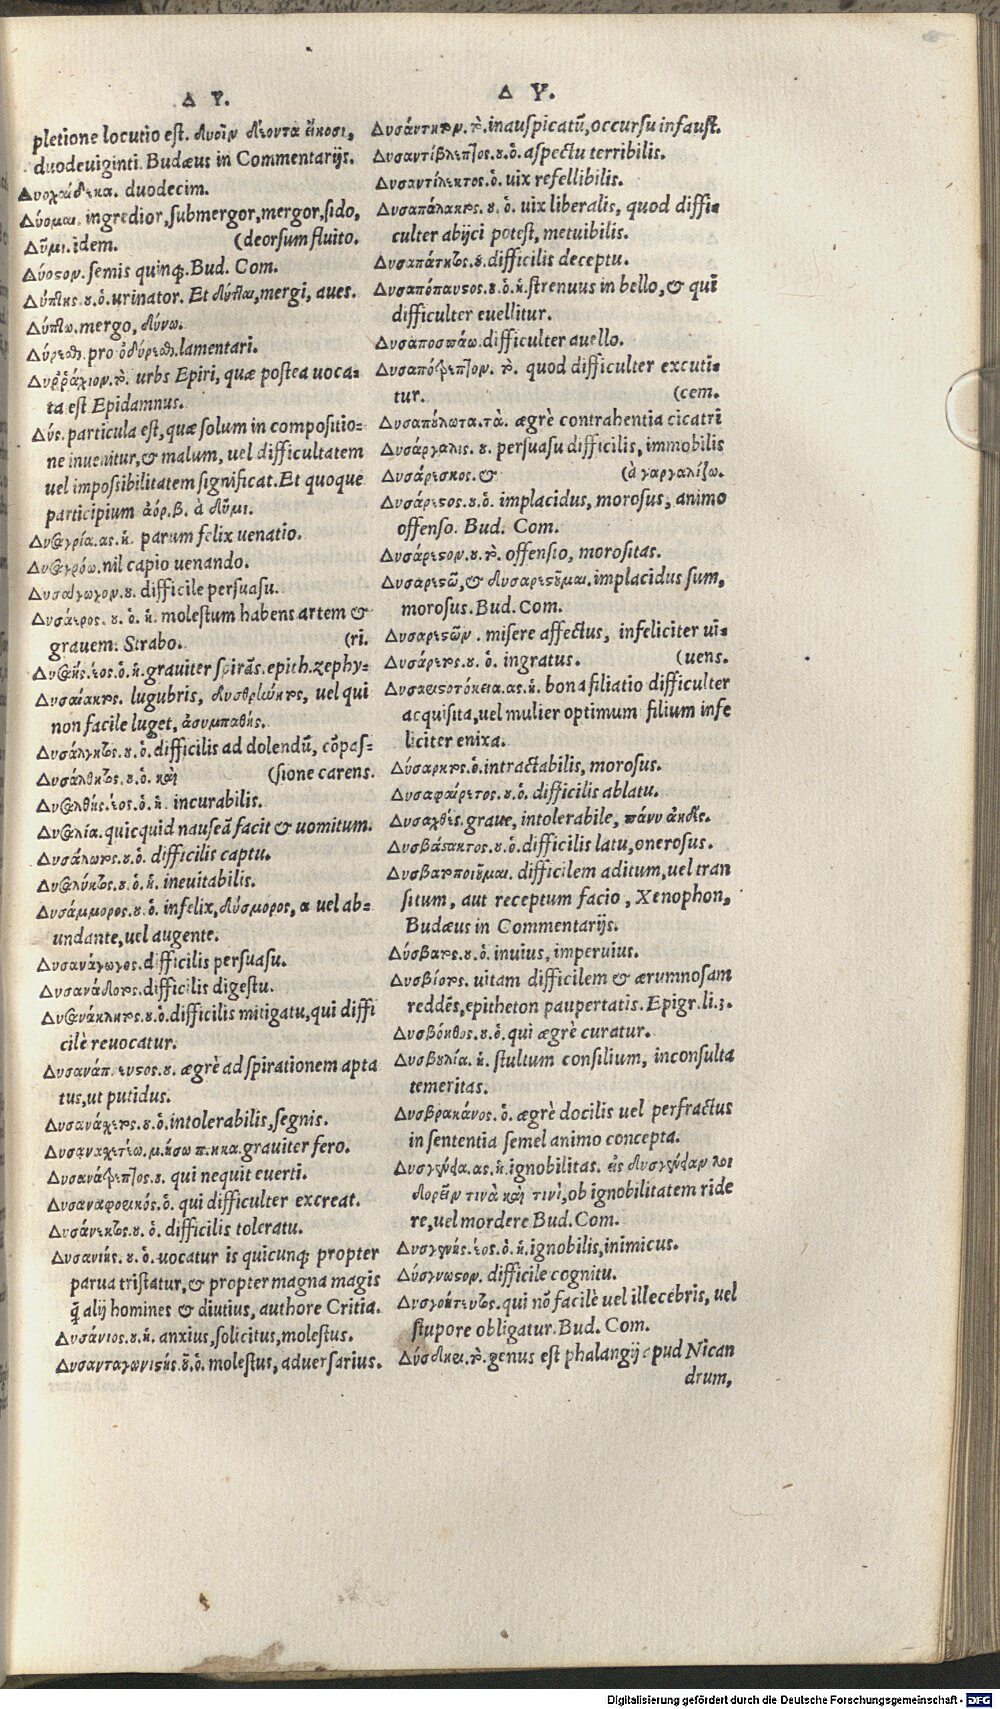 Δ Υ.
pletione locutio est. δυοῖν δέοντα εἴκοσι,
duodeuiginti. Budæus in Commentarijs.
Δυοκαίδεκα. duodecim.
Δύομαι. ingredior, submergor, mergor, sido,
Δῦμι. idem. (deorsum fluito.
Δύοςον. semis quinq;. Bud. Com.
Δύπτης. ȣ. ὁ. urinator. Et δύπται, mergi, aues.
Δύπτω. mergo, δύνω.
Δύρεσθ. pro ὀδύρεσθ. lamentari.
Δυῤῥάχιον. τὸ. urbs Epiri, quæ postea uoca-
ta est Epidamnus.
Δύς. particula est, quæ solum in compositio-
ne inuenitur, & malum, uel difficultatem
uel impossibilitatem significat. Et quoque
participium ἀόρ. β. à δῦμι.
Δυσαγρία. ας. ἡ. parum felix uenatio.
Δυσαγρέω. nil capio uenando.
Δυσάγωγον. ȣ. difficile persuasu.
Δυσάερος. ȣ. ὁ. ἡ. molestum habens artem &
grauem. Strabo. (ri.
Δυσαής. έος. ὁ. ἡ. grauiter spirãs. epith. zephy-
Δυσαίακτος. lugubris, δυσθρίωητος, uel qui
non facile luget, ἀσυμπαθής.
Δυσάλγητος. ȣ. ὁ. difficilis ad dolendũ, cõpas-
Δυσάλθητος. ȣ. ὁ. καὶ (sione carens.
Δυσαλθής. έος. ὁ. ἡ. incurabilis.
Δυσαλία. quicquid nauseã facit & uomitum.
Δυσάλωτος. ȣ. ὁ. difficilis captu.
Δυσαλύκτος. ȣ. ὁ. ἡ. ineuitabilis.
Δυσάμμορος. ȣ. ὁ. infelix, δύσμορος, α uel ab-
undante, uel augente.
Δυσανάγωγος. difficilis persuasu.
Δυσανάδοτος. difficilis digestu.
Δυσανάκλητος. ȣ. ὁ. difficilis mitigatu, qui diffi
cilè reuocatur.
Δυσανάπνευςος. ȣ. ægrè ad spirationem apta
tus, ut putidus.
Δυσανάχετος. ȣ. ὁ. intolerabilis, segnis.
Δυσαναχετέω. μ. ήσω π. ηκα. grauiter fero.
Δυσανάτρεπτος. ȣ. qui nequit euerti.
Δυσαναφορικός. ὁ. qui difficulter excreat.
Δυσάνεκτος. ȣ. ὁ. difficilis toleratu.
Δυσανιής. ȣ. ὁ. uocatur is quicunq; propter
parua tristatur, & propter magna magis
q̃ alij homines & diutius, authore Critia.
Δυσάνιος. ȣ. ἡ. anxius, solicitus, molestus.
Δυσανταγωνιςής. ȣ. ὁ. molestus, aduersarius.
Δ Υ.
Δυσάντητον. τὸ. inauspicatũ, occursu infaust.
Δυσαντίβλεπτος. ȣ. ὁ. aspectu terribilis.
Δυσαντίλεκτος. ὁ. uix refellibilis.
Δυσαπάλακτος. ȣ. ὁ. uix liberalis, quod diffi-
culter abijci potest, metuibilis.
Δυσαπάτητος. ȣ. difficilis deceptu.
Δυσαπόπαυςος. ȣ. ὁ. ἡ. strenuus in bello, & qui
difficulter euellitur.
Δυσαποσπάω. difficulter auello.
Δυσαπότρεπτον. τὸ. quod difficulter excuti-
tur. (cem.
Δυσαπύλωτα. τὰ. ægrè contrahentia cicatri
Δυσάργαλις. ȣ. persuasu difficilis, immobilis
Δυσάρεσκος. & (à γαργαλίζω.
Δυσάρεςος. ȣ. ὁ. implacidus, morosus, animo
offenso. Bud. Com.
Δυσάρεςον. ȣ. τὸ. offensio, morositas.
Δυσαρεςῶ, & δυσαρεςοῦμαι. implacidus sum,
morosus. Bud. Com.
Δυσαρεςῶν. misere affectus, infeliciter ui-
Δυσάρετος. ȣ. ὁ. ingratus. (uens.
Δυσαριςοτόκεια. ας. ἡ. bona filiatio difficulter
acquisita, uel mulier optimum filium infe
liciter enixa.
Δύσαρκτος. ὁ. intractabilis, morosus.
Δυσαφαίρετος. ȣ. ὁ. difficilis ablatu.
Δυσαχθές. graue, intolerabile, πάνυ ἀηδές.
Δυσβάςακτος. ȣ. ὁ. difficilis latu, onerosus.
Δυσβατοποιοῦμαι. difficilem aditum, uel tran
situm, aut receptum facio, Xenophon,
Budæus in Commentarijs.
Δύσβατος. ȣ. ὁ. inuius, imperuius.
Δυσβίοτος. uitam difficilem & ærumnosam
reddẽs, epitheton paupertatis. Epigr. li. 3.
Δυσβόηθος. ȣ. ὁ. qui ægrè curatur.
Δυσβȣλία. ἡ. stultum consilium, inconsulta
temeritas.
Δυσβρακάνος. ὁ. ægrè docilis uel perfractus
in sententia semel animo concepta.
Δυσγένεια. ας. ἡ. ignobilitas. εἰς δυσγένειαν λοι
δορεῖν τινὰ καὶ τινὶ, ob ignobilitatem ride
re, uel mordere Bud. Com.
Δυσγενής. έος. ὁ. ἡ. ignobilis, inimicus.
Δύσγνωςον. difficile cognitu.
Δυσγοήτευτος. qui nõ facilè uel illecebris, uel
stupore obligatur. Bud. Com.
Δύσδηρι. τὸ. genus est phalangij apud Nican
drum,
Digitalisierung gefördert durch die Deutsche Forschungsgemeinschaft - DFG